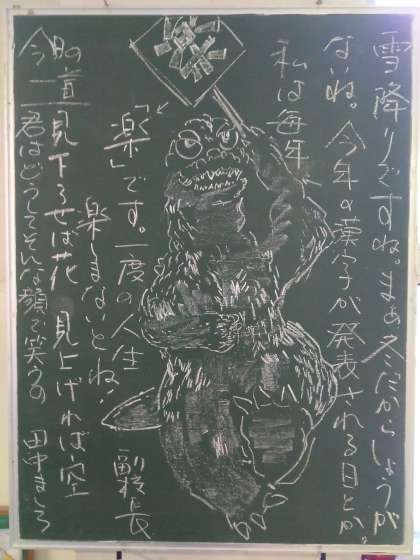 雪降りですね。まぁ冬だからしょうが
ないね。今年の漢字が発表される日とか。
私は毎年
「楽」です。一度の人生
楽しまないとね!
副校長
今朝の道
見下ろせば花 見上げれば空
君はどうしてそんな顔で笑うの 田中ましろ